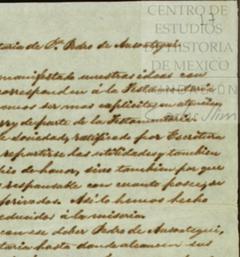 CENTRO DE
ESTUDIOS
DE HISTORIA
DE MEXICO
FUNDACIÓN
Carlos Slim
17
taria de Dn. Pedro de Ansoategui
manifestado nuestras ideas con
corresponden á la Testamentaria
mos ser mas explicitos en atencion
y de parte de la Testamentaria
sociedad, ratificado por Escritura
repartirse las utilidades y tambien
de honor, sino tambien por que
responsable con cuanto posee, su
derivados. Asi lo hemos hecho
reducidos á la miseria.
deber Pedro de Ansoategui,
taria hasta donde alcancen sus